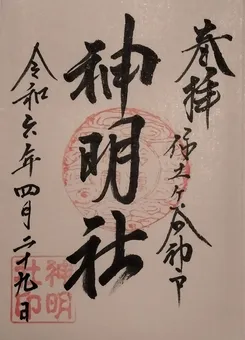 奉拝
保土ケ谷神戸
神明社
令和六年四月二十九日
神明
社印